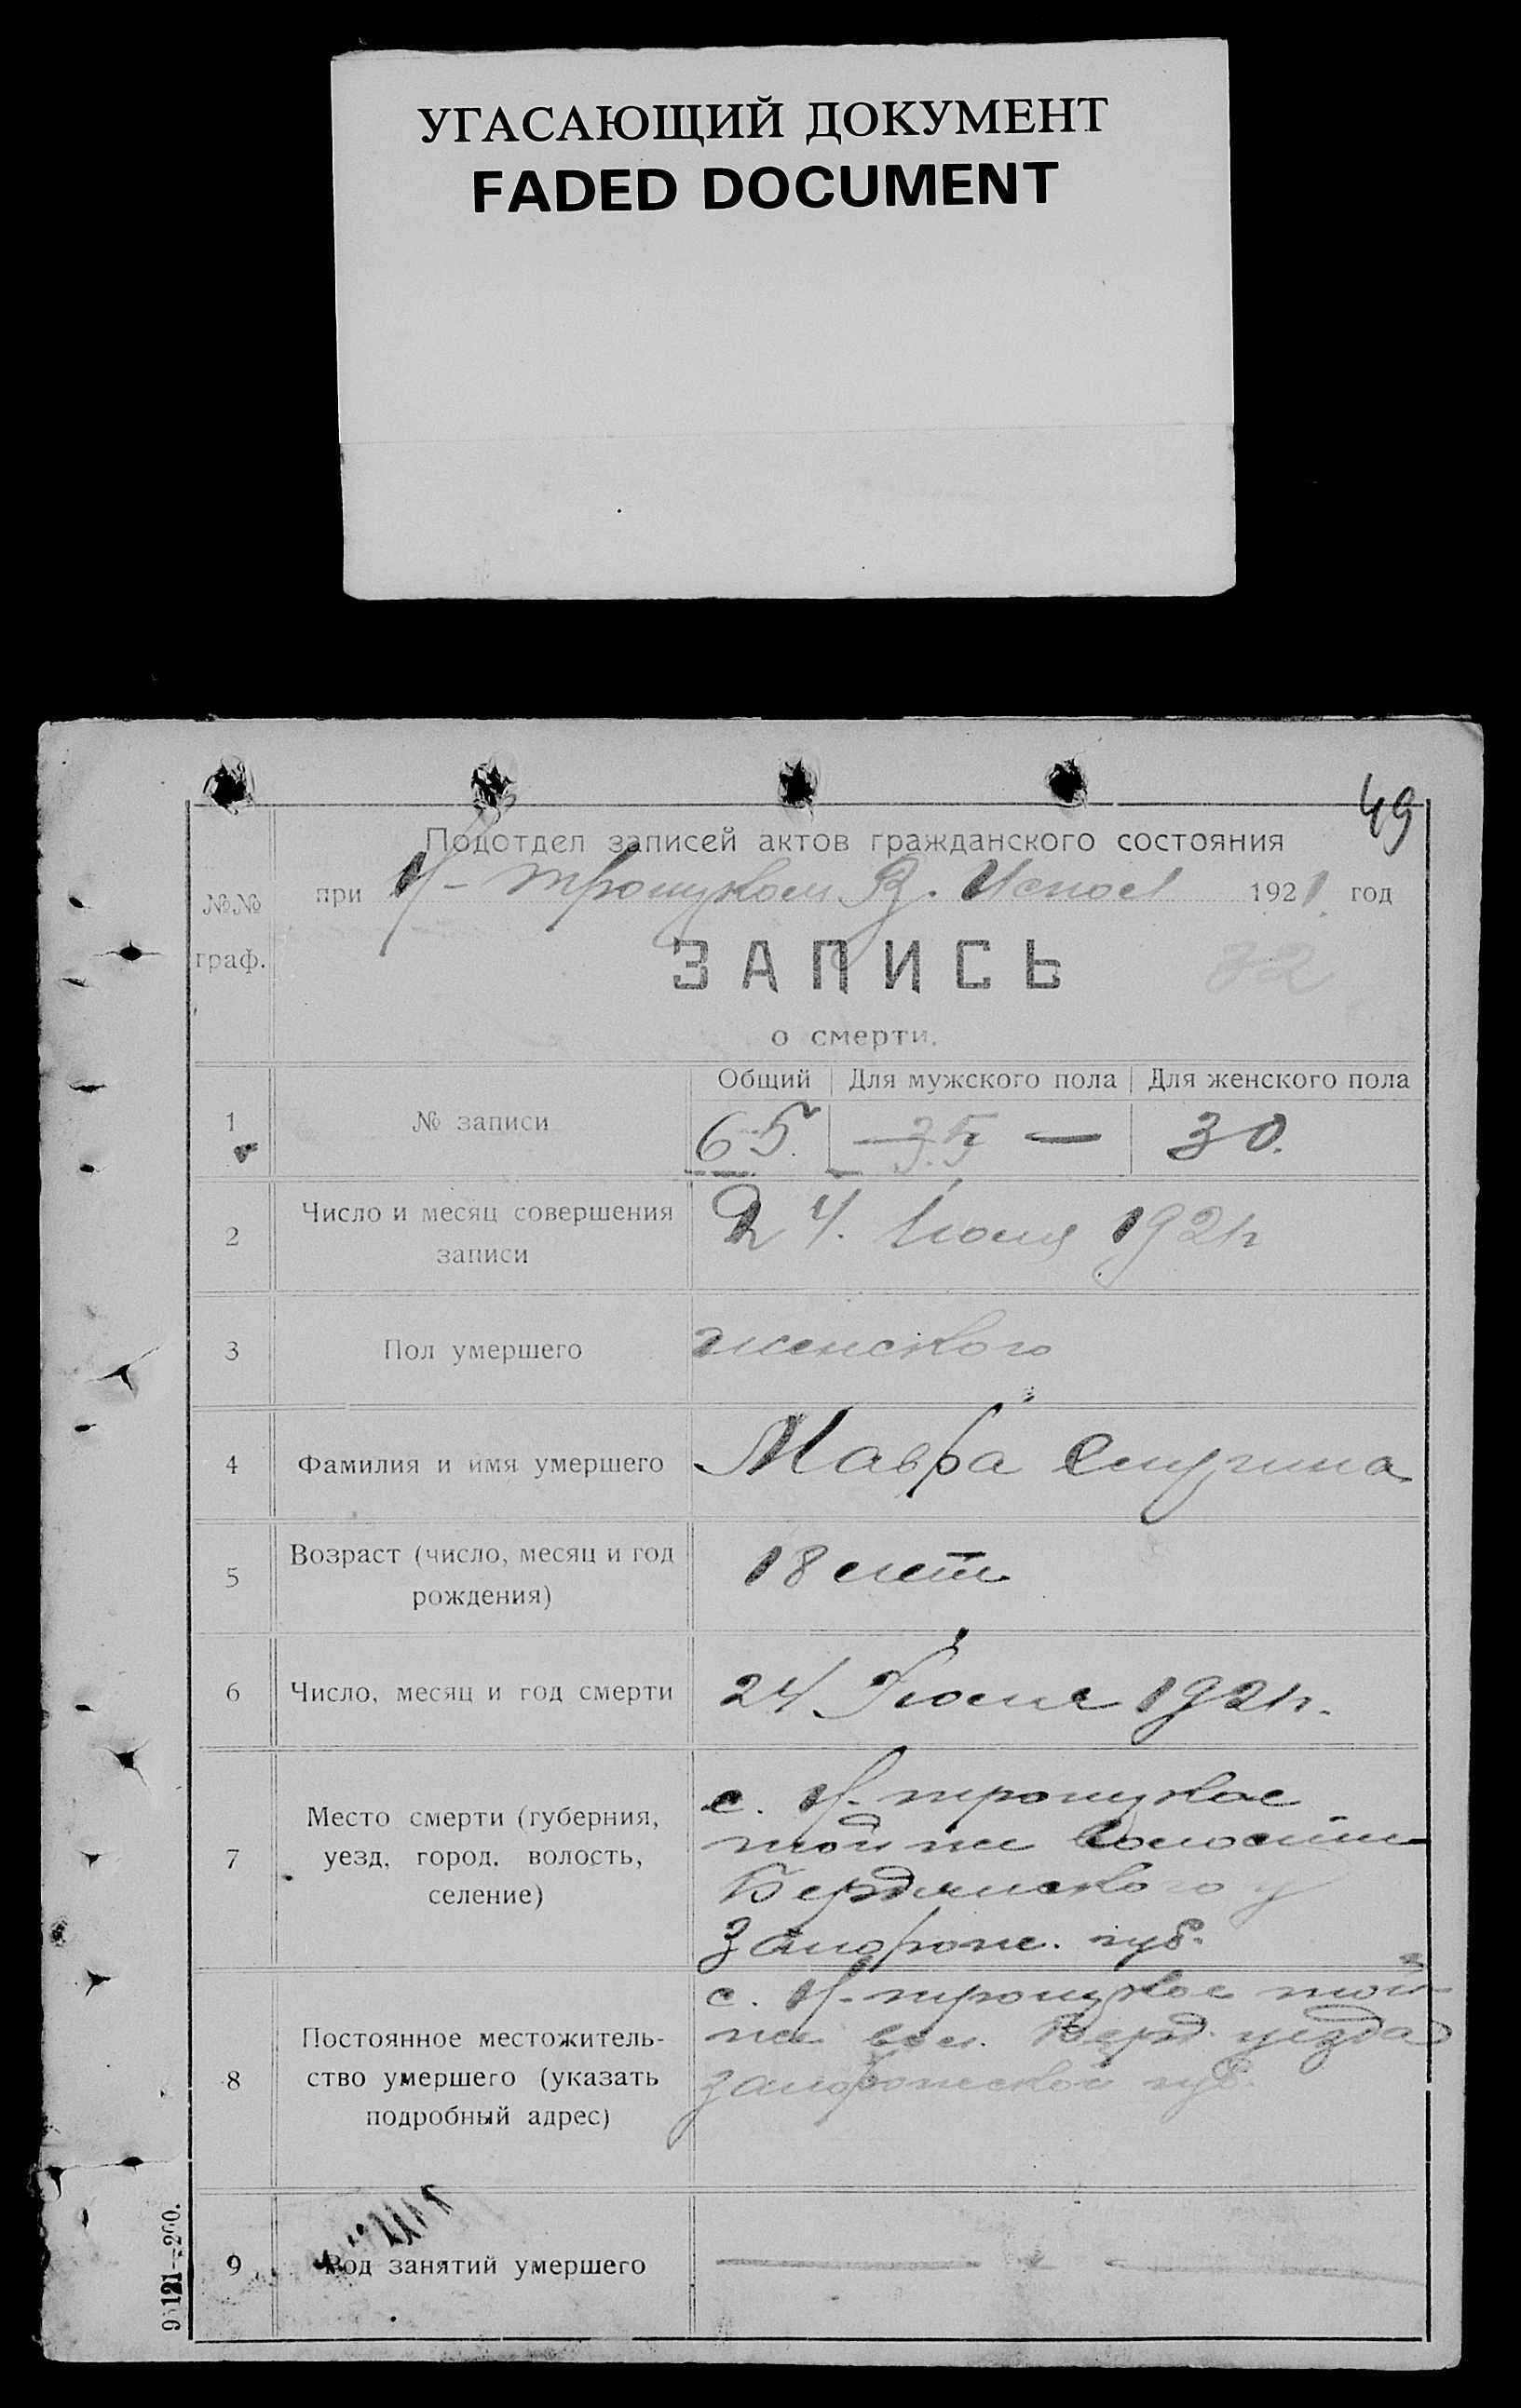 УГАСАЮЩИЙ ДОКУМЕНТ
FADED DOCUMENT
49
Подотдел записей актов гражданского состояния
при Н-троицком В. Испол 1921 год
№№ граф.
ЗАПИСЬ
32
о смерти.
Общий Для мужского пола Для женского пола
1 № записи 65. 35 — 30.
2 Число и месяц совершения
записи
24. Июня 1921г
3 Пол умершего женского
4 Фамилия и имя умершего Мавра
5 Возраст (число, месяц и год
рождения)
18 лет
6 Число, месяц и год смерти 24 Июня 1921г.
7 Место смерти (губерния,
уезд, город, волость,
селение)
с. Н-троицкое
той же волости
Бердянского у
Запорож. губ.
8 Постоянное местожитель-
ство умершего (указать
подробный адрес)
с. Н-троицкое той
же вол. Берд. уезда
Запорожской губ.
9 Род занятий умершего